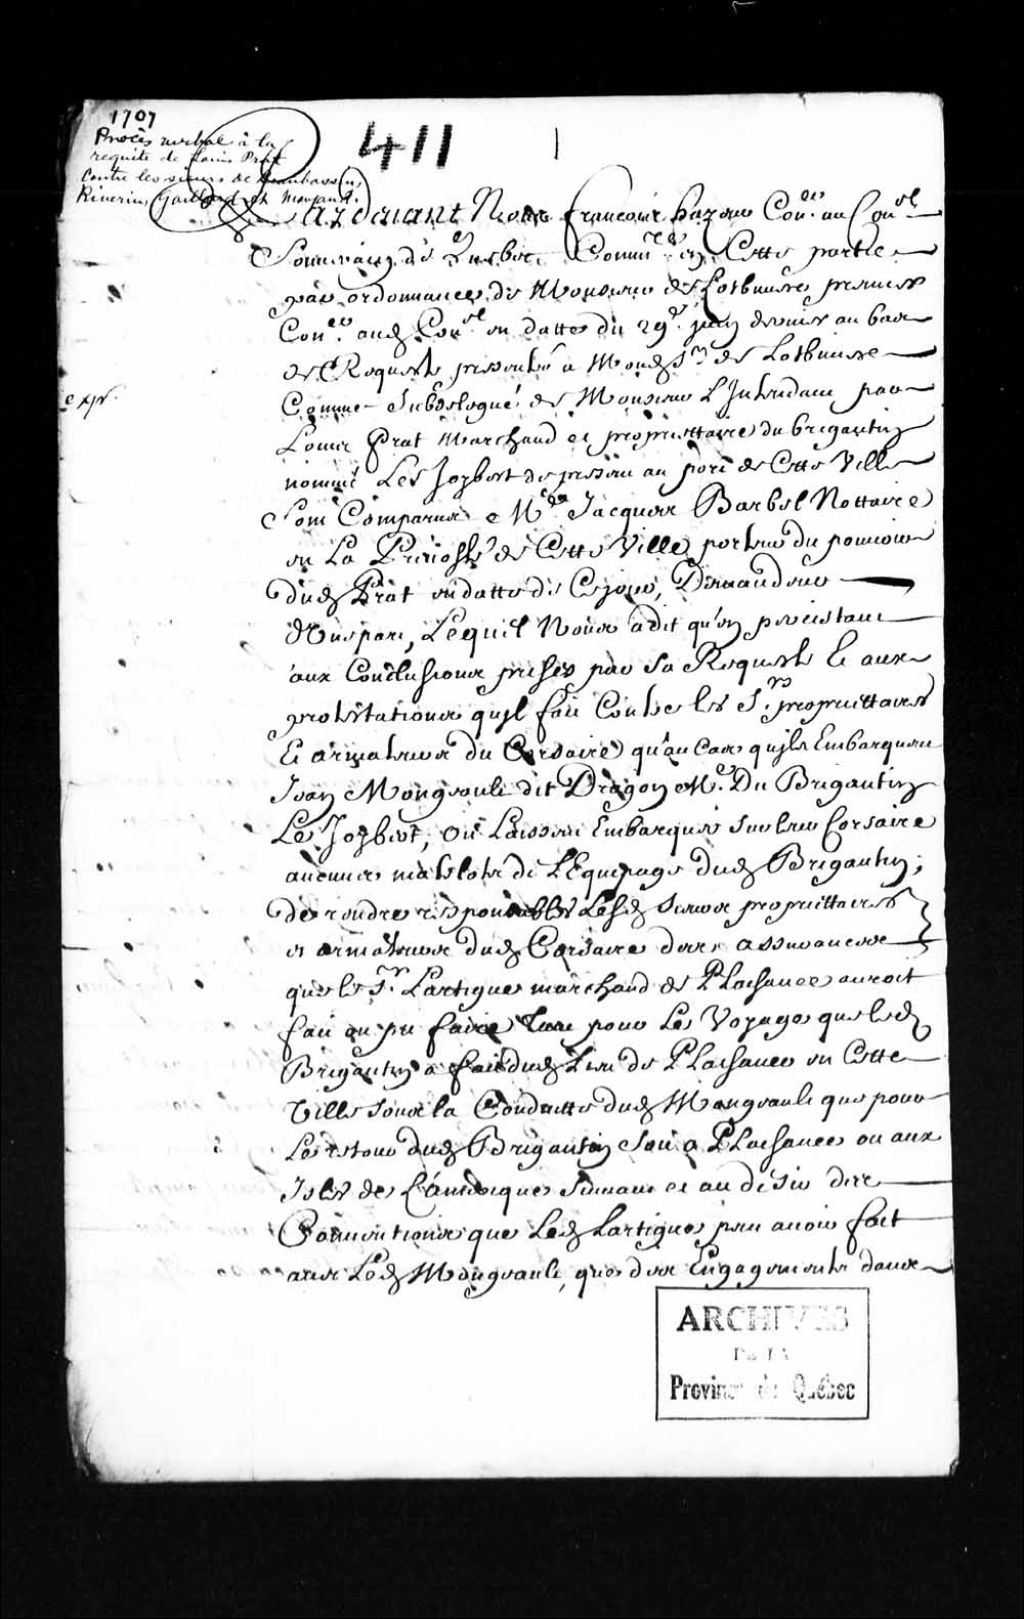 1707
Procès verbal à la
requête de Louis Prat
Contre les sieurs de Beaubassin,
Riverin, Gaillard et Monjaud.
411
1
Pardevant Nous francois hazeur Con.er au Con.el
Souuerain de Quebec Comm.re en Cette partie
par ordonnance de Monsieur de Lotbiniere premier
Con.er aud Con.el en datte du 29.e juin dernier au bas
de Requeste presentée a Mond S.r de Lotbiniere
exp.
Comme Subdelegué de Monsieur L'Intendant par
Louis Prat Marchand et propriettaire du brigantin
nommé Le Joybert de present au port de Cette Ville
Sont Comparus M.e Jacques Barbel Nottaire
en La Preuosté de Cette Ville porteur du pouuoir
dud Prat en datte de Ce jour, Demandeur
d'Unepart, Lequel Nous a dit qu'en percistant
aux Conclusions prises par Sa Requeste Et aux
protestations qu'il fait Contre les S.rs propriettaires
Et armateurs du Corsaire qu'au Cas qu'ils Embarquent
Jean Mongeault dit Dragon M.e Du Brigantin
Le Joybert, ou Laissent Embarquer Sur leur Corsaire
aucuns matelots de L'Equipage dud Brigantin;
de rendre responsables Lesd Sieurs propriettaires
et armateurs dud Corsaire des assurances
que le S.r Lartigue marchand de Plaisance auroit
fait ou pu faire faire pour Le Voyage que led
Brigantin a fait dud Lieu de Plaisance en Cette
Ville Sous la Conduitte dud Mongeault que pour
Le retour dud Brigantin Soit a Plaisance ou aux
Isles de L'amerique Suiuant et au desir des
Conuentions que Led Lartigue peu auoir fait
auec Led Mongeault, que des Engagements dans
ARCHIVES
DE LA
Province de Québec